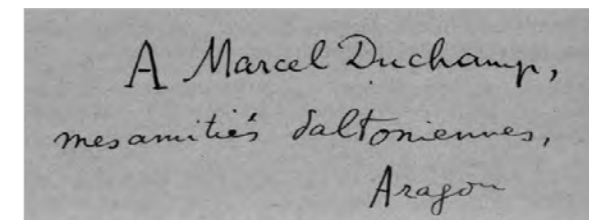 A Marcel Duchamp,
mes amitiés daltoniennes,
Aragon